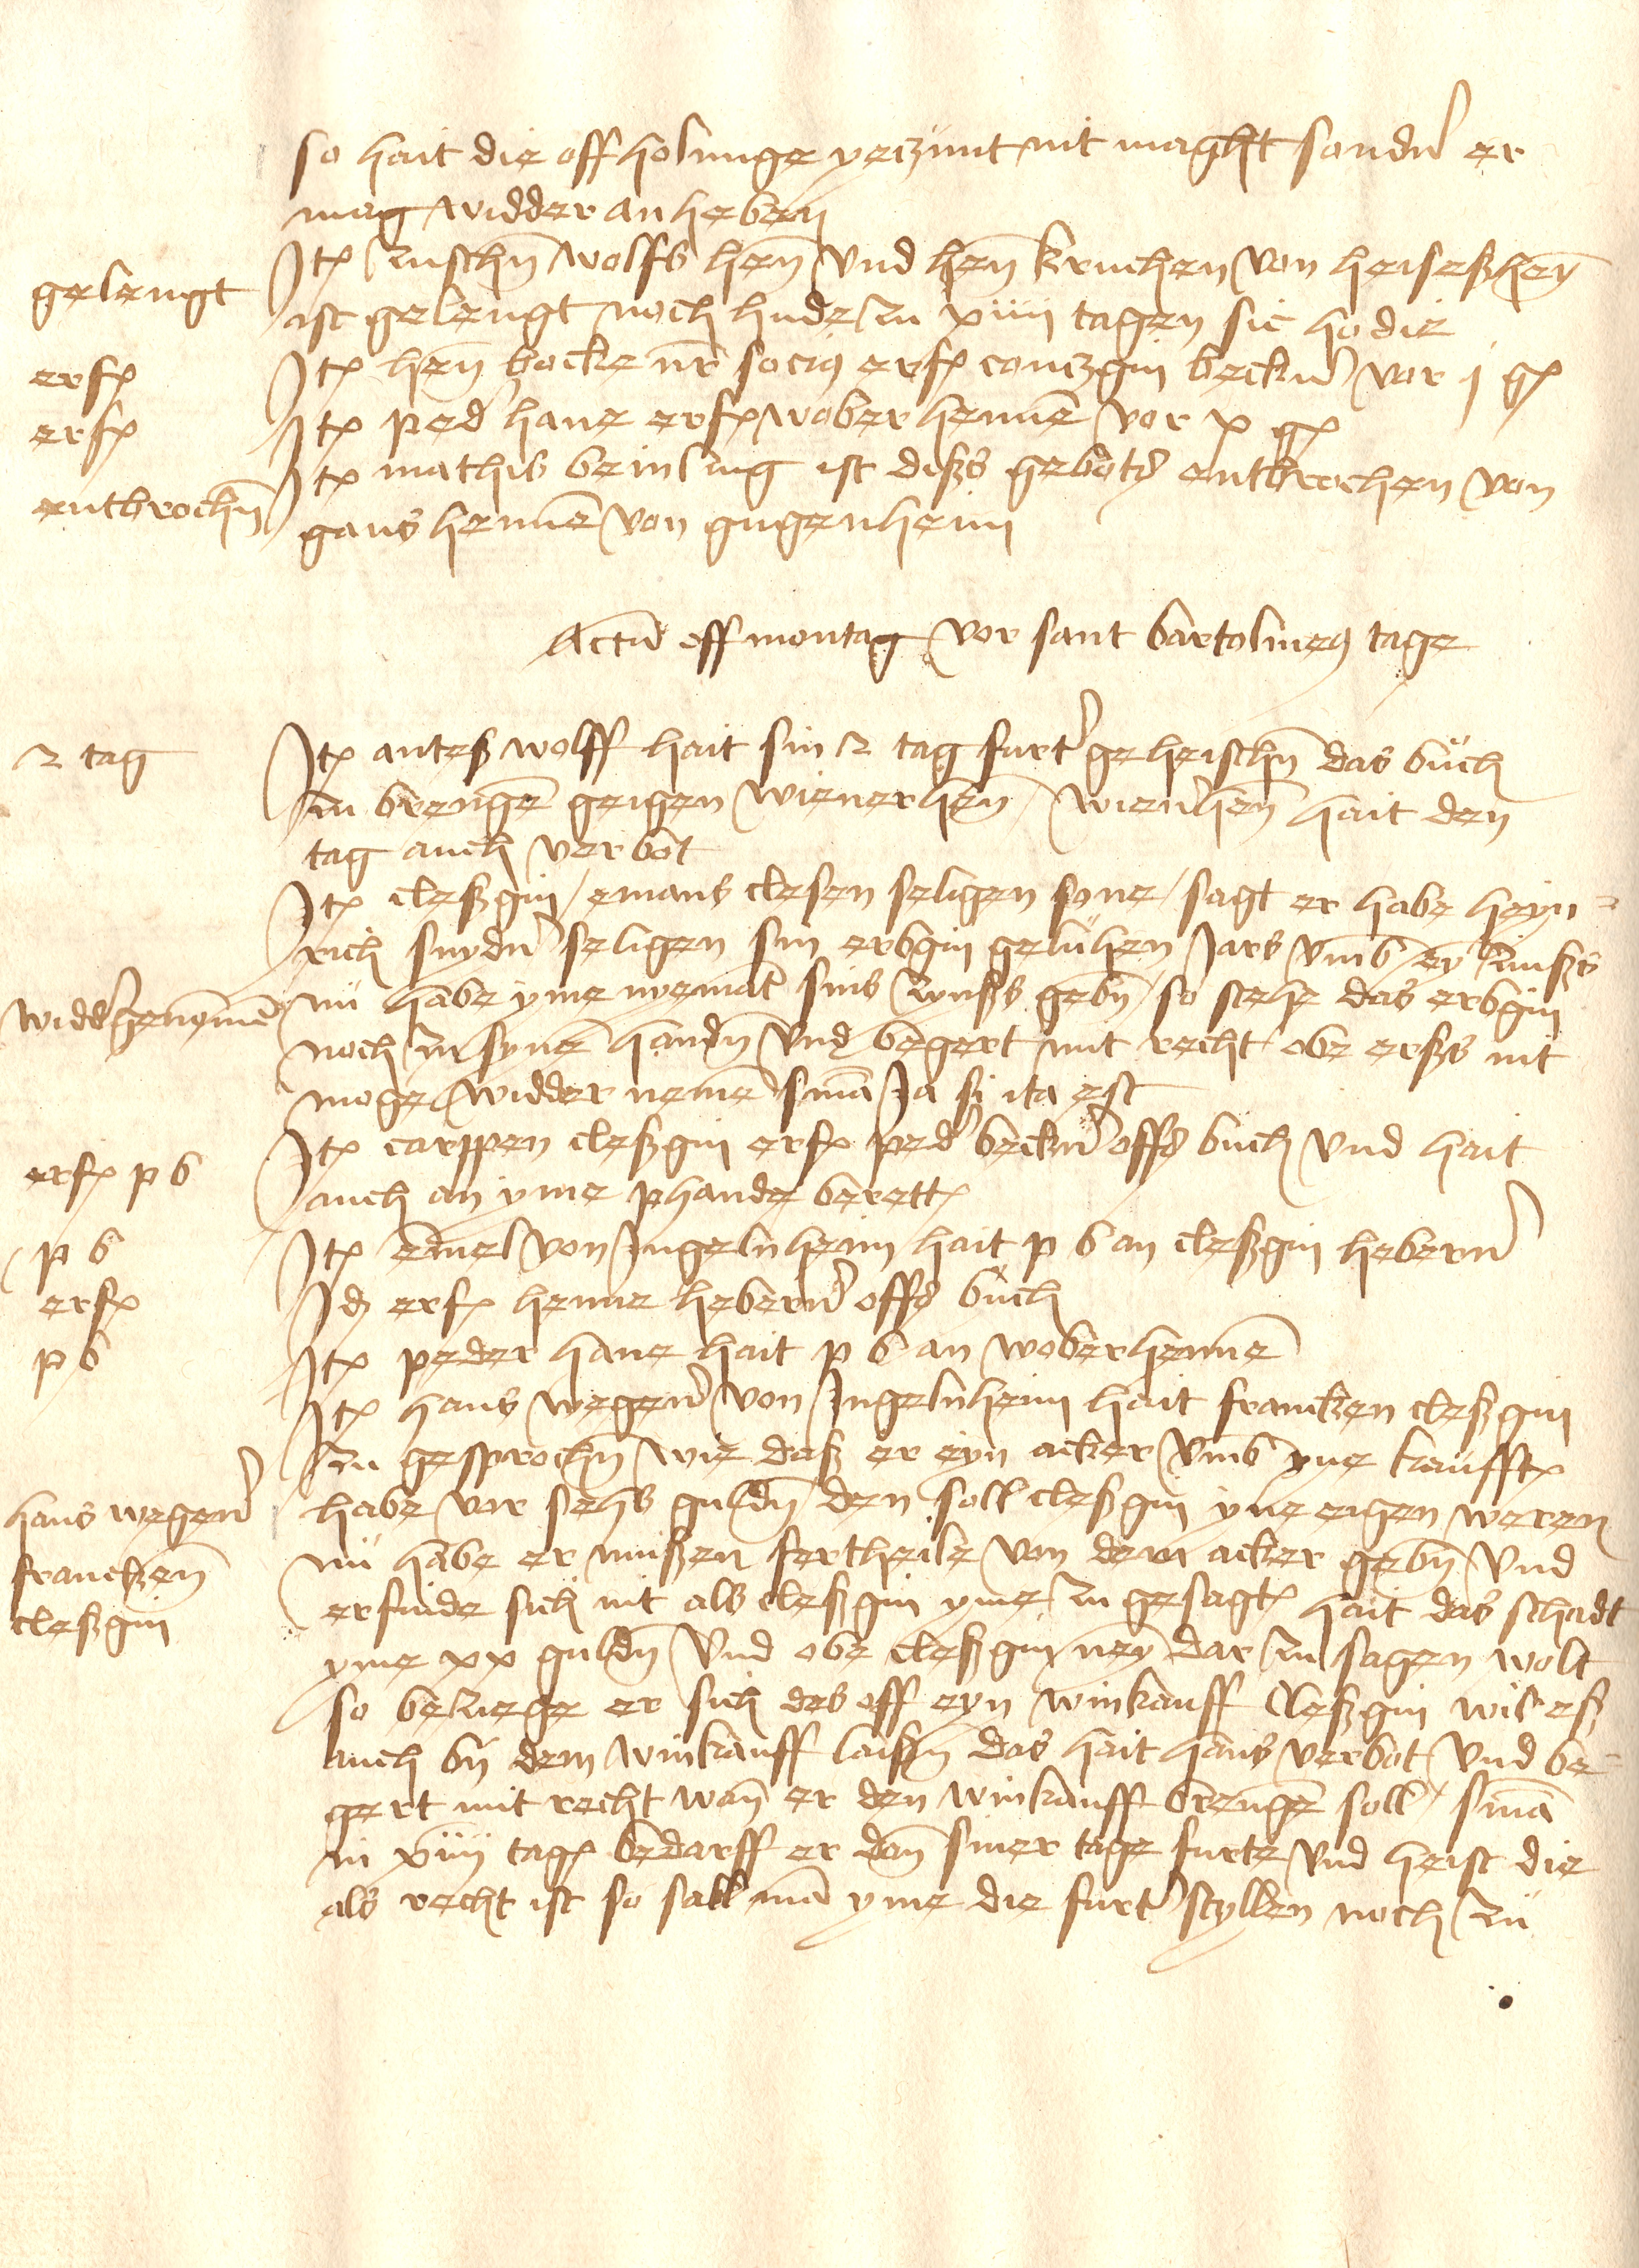 so hait die offholunge yeczunt nit maght sondern er
mag widder an heben
gelengt
Itẽ zuschen wolffs hen̄ vnd hen̄ kruchen von heiseßhey̅
ist gelengt noch hude zu xiiii tagen sic hodie
erf
Itẽ hen̄ hocke nr̄ socius erf conczgin becker vor j gꝭ
erf
Itẽ ped hane erf wober henne̅ vor x gꝭ
entbrochn̅
Itẽ mathis beinling ist diß gebots entbrochen von
gans henne̅ von gugenheim
Actu̅ off montag vor sant bartolmeus tage
2 tag
Itẽ anteß wolff hait sin 2 tag furt' geheischn̅ das buch
zu brenge̅ geigen wienerhen̅ / wienhen̅ hait den
tag auch verbot
Itẽ cleßgin / emans clesen seligen sone / sagt er habe heyn=
rich snyder seligen sin erbgin geluhen Jars vmb ey̅ zinß
widd'genome̅
nu habe yme nyemat sins zynß gebn̅ / so stehe das erbgin
noch zu syne̅ handn̅ vnd begert mit recht obe erß nit
moge widder neme̅ sma̅ Ja si ita est
erf p b
Itẽ carppen cleßgin erf ped' becker offs buch vnd hait
auch an yme phande berett
p b
Itẽ emel von Ingelnheim hait p b an cleßgin heberer
erf
Id erf henne heberer offs buch
p b
Itẽ peder hane hait p b an woberhenne̅
Itẽ hans wegener von Ingelnheim hait francken cleßgin
zu gesprochn̅ wie daß er eyn acker vmb yne kaufft
hans wegener
habe vor sehs guldn̅ den soll cleßgin yne eigen weren
francken̅
nu habe er mußen fertheile von dem acker gebn̅ vnd
cleßgin
erfinde sich nit als cleßgin yme zu gesagt hait das schadt
yme xx guldn̅ vnd obe cleßgin ney̅ dar zu sagen wolt
so beziege er sich des off eyn winkauff Cleßgin wil eß
auch by dem winkauff laißn̅ das hait hans verbot vnd be=
gert mit recht wan̅ er den winkauff brenge̅ soll / sma̅
in xiiii tagꝭ bedarff er dan̅ siner tage furte vnd heist die
als recht ist so sall ma̅ yme die furt' styllen noch zu